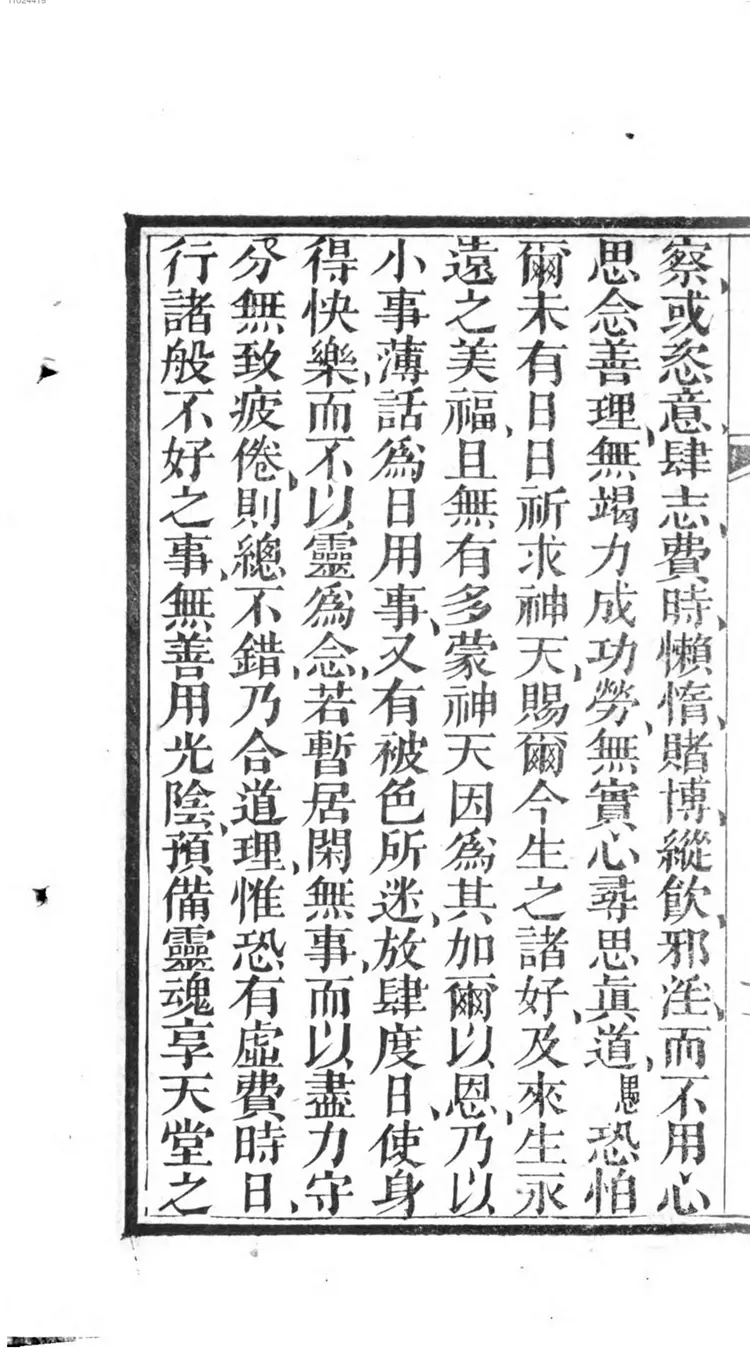 察、或恣意肆志、費時懶惰、賭博、縱飲、邪淫、而不用心
思念善理、無竭力成功勞、無實心尋思眞道、愚恐怕
爾未有日日祈求神天、賜爾今生之諸好、及來生永
遠之美福、且無有多蒙神天因爲其加爾以恩、乃以
小事薄話爲日用事、又有被色所迷、放肆度日、使身
得快樂、而不以靈爲念、若暫居閑無事、而以盡力守
分、無致疲倦、則總不錯、乃合道理、惟恐有虛費時日、
行諸般不好之事、無善用光陰、預備靈魂享天堂之